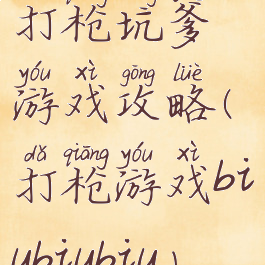 打枪坑爹
yóu xì gōng lüè
游戏攻略(
dǎ qiāng yóu xì
打枪游戏bi
ubiubiu)